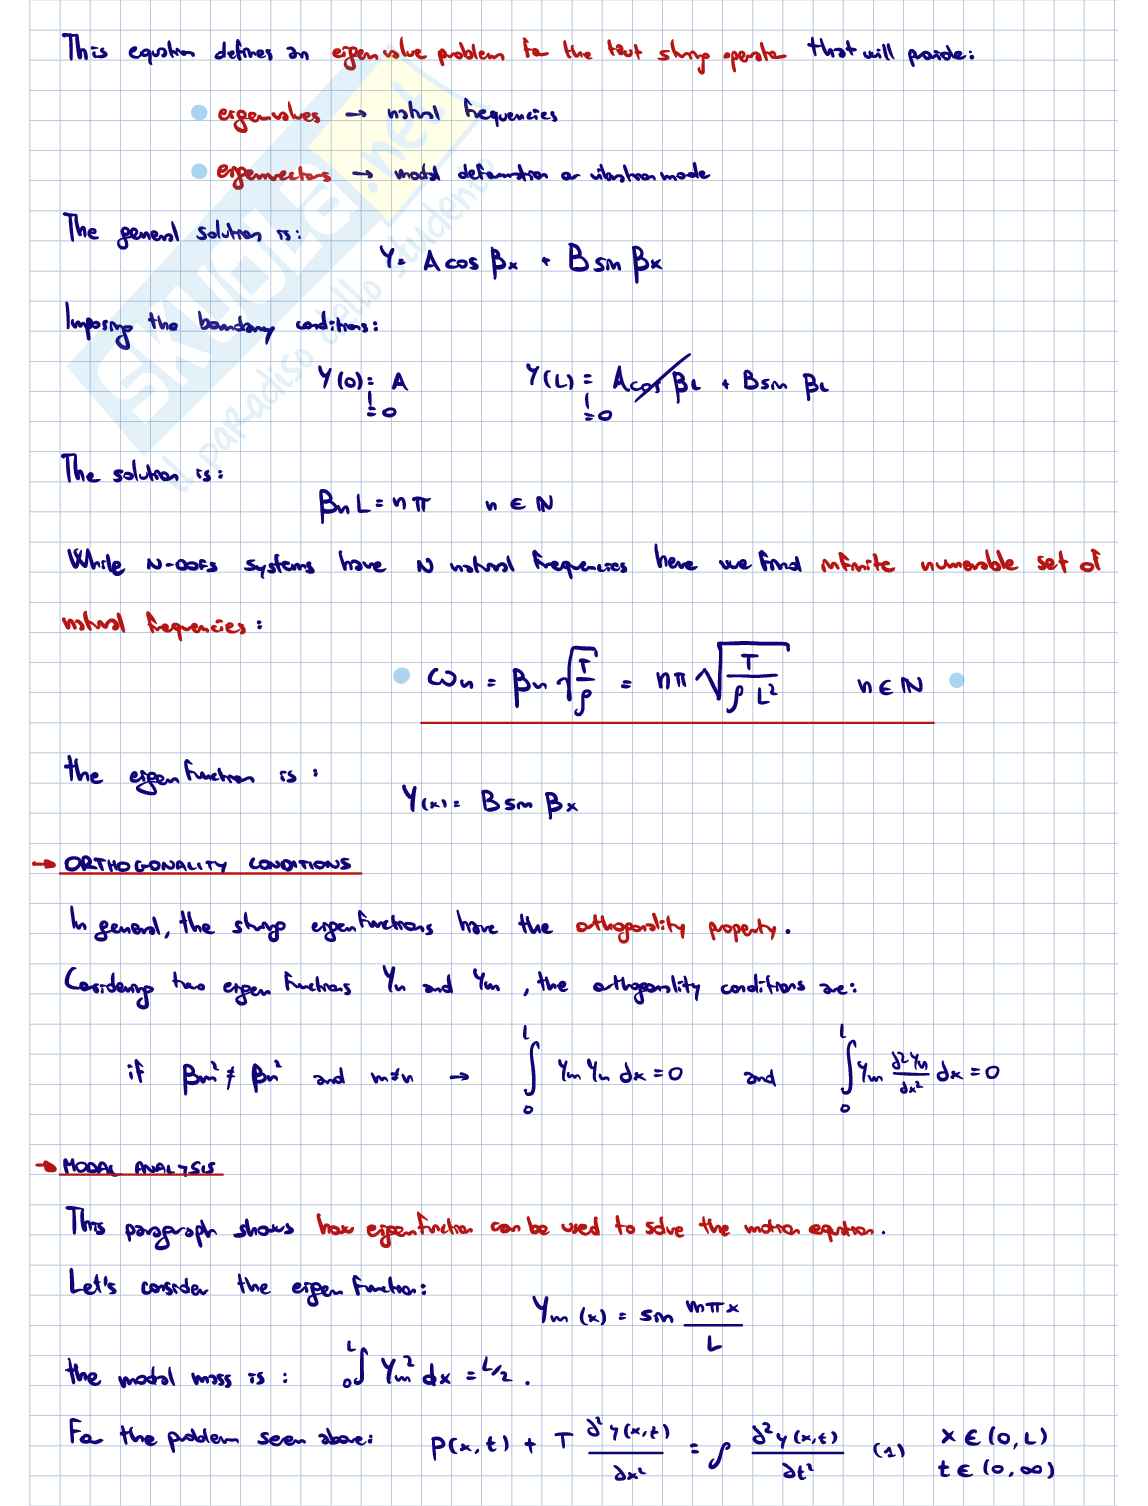 This equation defines an eigenvalue problem for the taut string operator that will provide:
eigenvalues → natural frequencies
eigenvectors → modal deformation or vibration mode
The general solution is:
Y = A cos βx + B sin βx
Imposing the boundary conditions:
Y(0) = A Y(L) = A cos βL + B sin βL
! = 0 ! = 0
The solution is:
βn L = nπ n ∈ N
While N-DOFs systems have N natural frequencies here we find infinite numerable set of
natural frequencies:
ωn = βn √(T/ρ) = nπ √(T/(ρL²)) n ∈ N
the eigenfunction is:
Y(x) = B sin βx
→ ORTHOGONALITY CONDITIONS
In general, the string eigenfunctions have the orthogonality property.
Considering two eigenfunctions Yn and Ym, the orthogonality conditions are:
if βm² ≠ βn² and m≠n → ∫₀ᴸ Ym Yn dx = 0 and ∫₀ᴸ Ym ∂²Yn/dx² dx = 0
→ MODAL ANALYSIS
This paragraph shows how eigenfunction can be used to solve the motion equation.
Let's consider the eigenfunction:
Ym (x) = sin mπx/L
the modal mass is: ∫₀ᴸ Ym² dx = L/2.
For the problem seen above: P(x,t) + T ∂²y(x,t)/∂x² = ρ ∂²y(x,t)/∂t² (1) x ∈ (0,L)
t ∈ (0,∞)
SKUOLA.net
il paradiso dello studente